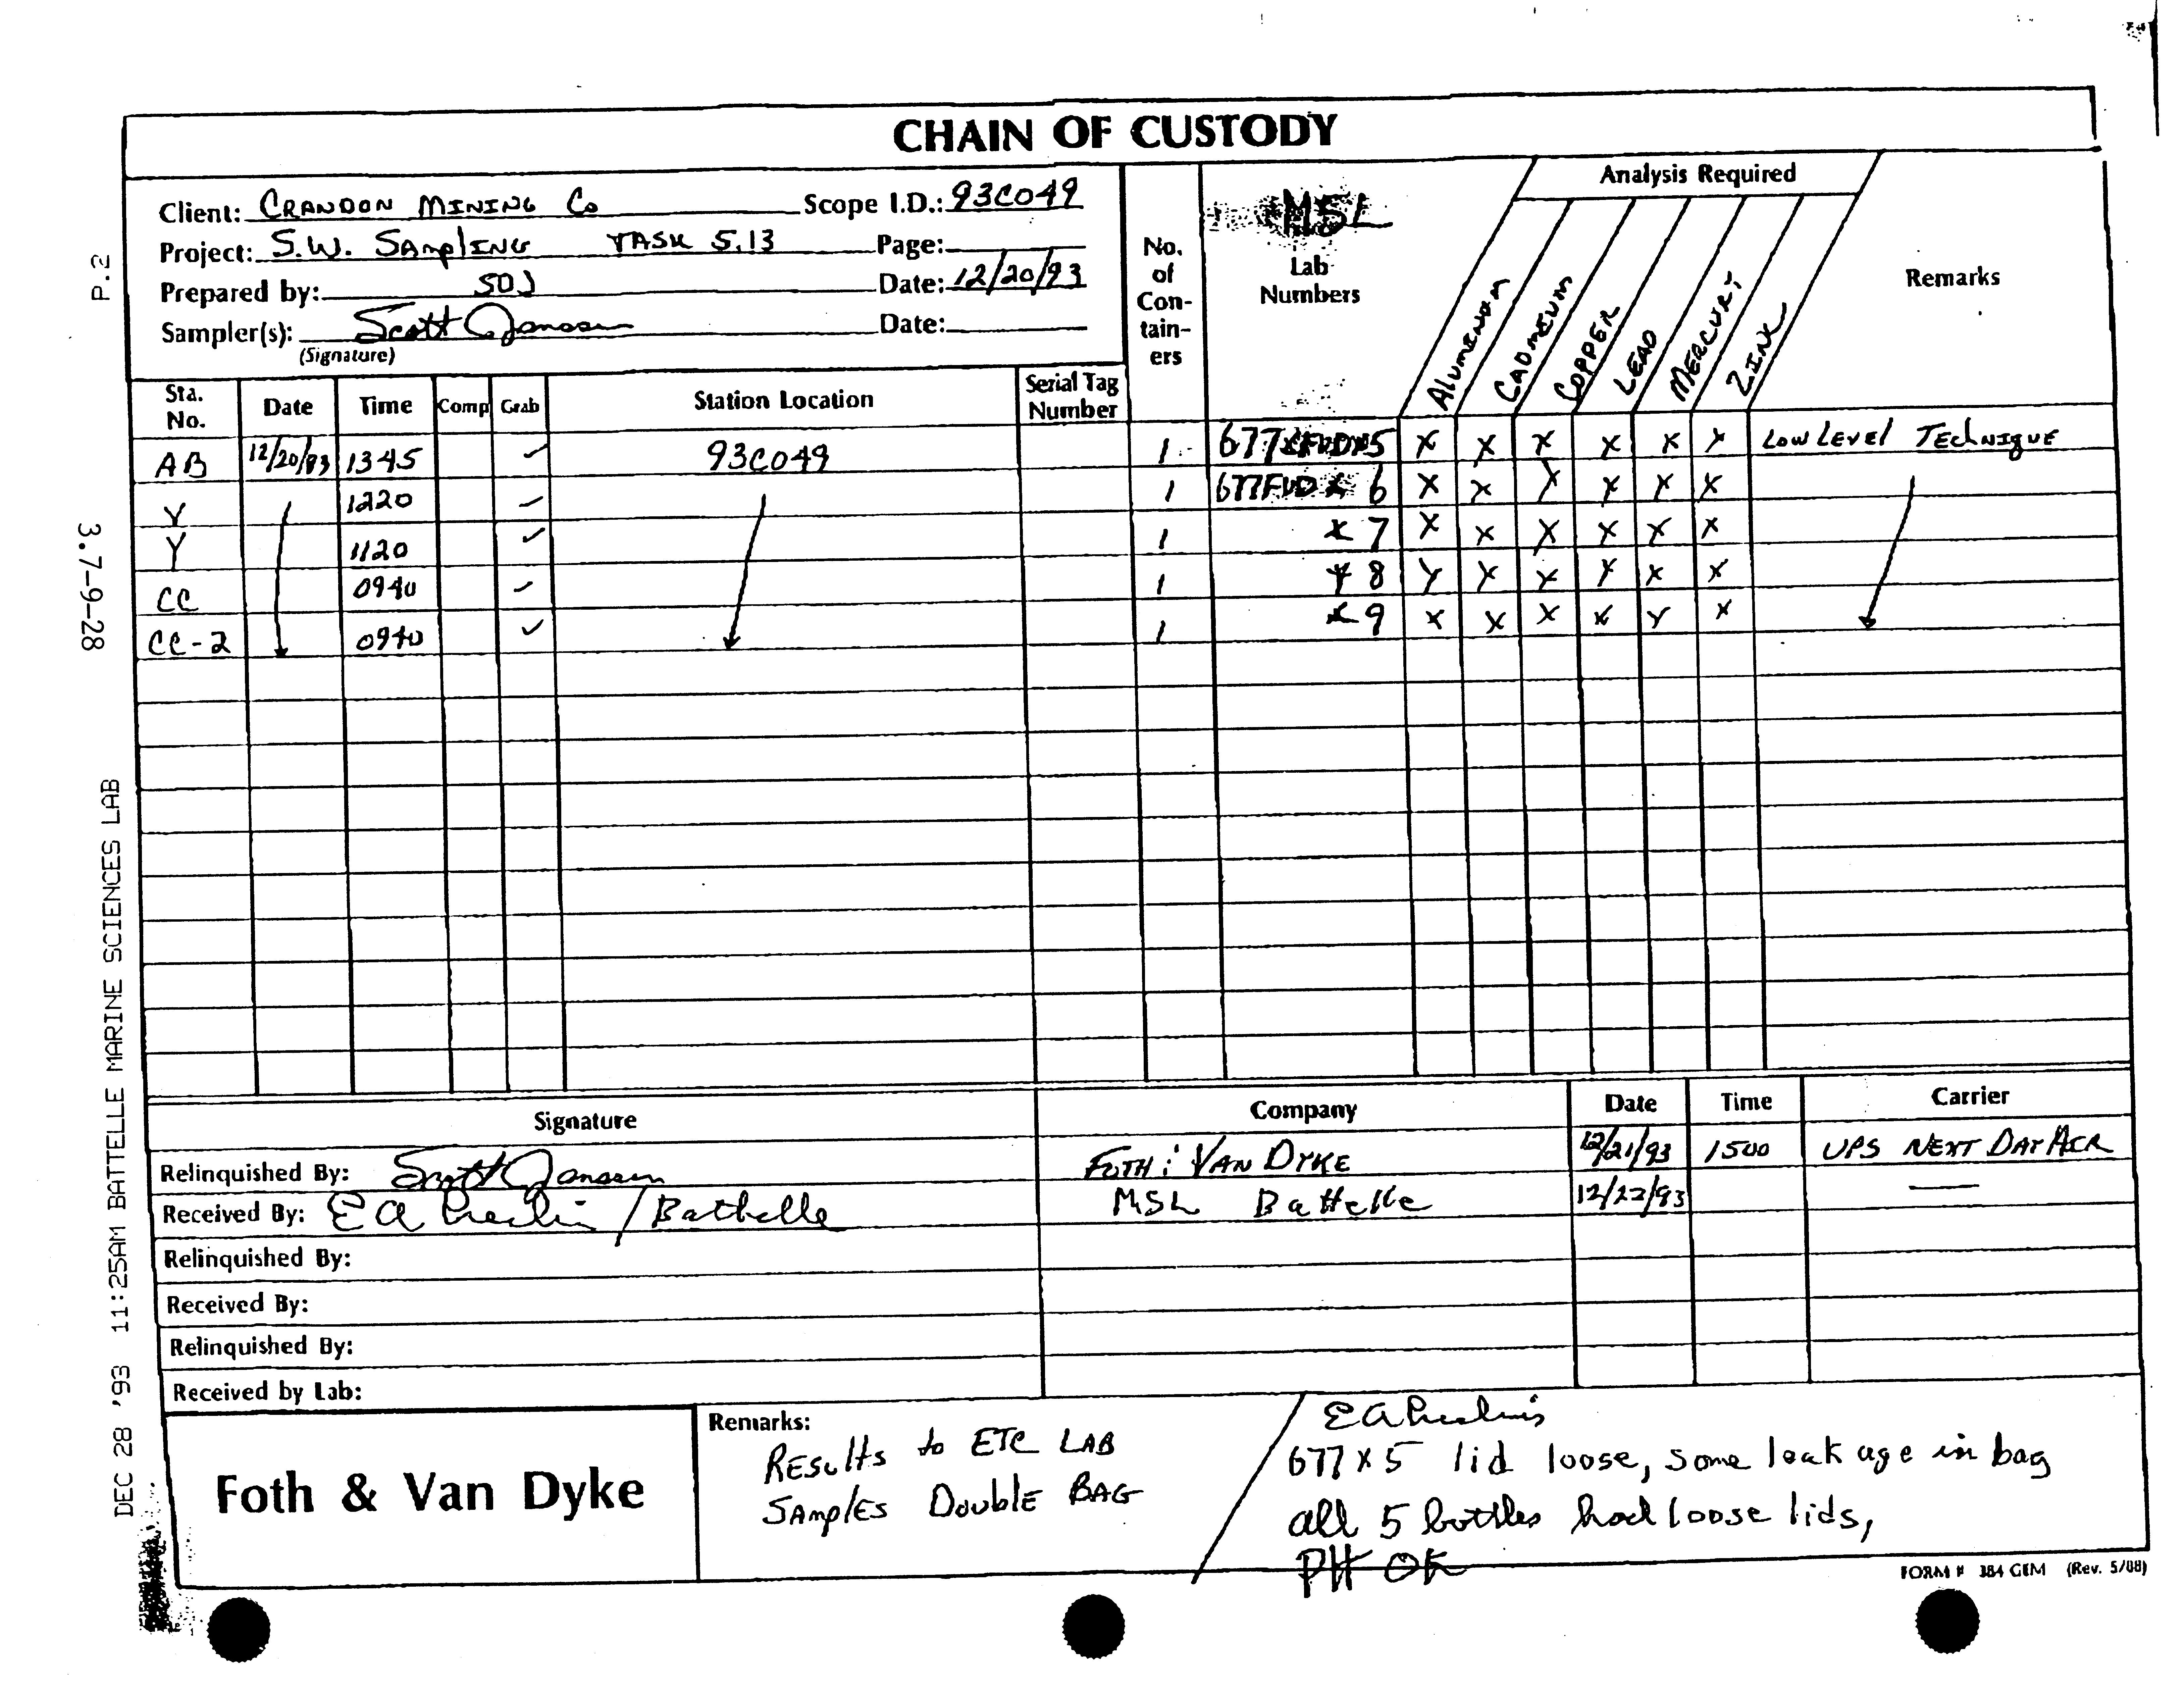 CHAIN OF CUSTODY
Client: CRANDON MINING Co Scope I.D.: 93C049
Project: S.W. SAmplING TASK 5.13 Page:
Prepared by: SOJ Date: 12/20/93
Sampler(s): Scott Janssen Date:
(Signature)
No. of Con- tain- ers
MSL
Lab Numbers
Analysis Required
AlumINUM CADmIUM COPPER LEAD MERCURY ZINK
Remarks
Sta. No. Date Time Comp Grab Station Location Serial Tag Number
AB 12/20/93 1345 ✓ 93C049 1 677 5 X X X X X X Low LEvEl TEchNIquE
Y 1220 ✓ 1 677FVD 6 X X X X X X
Y 1120 ✓ 1 x 7 X X X X X X
CC 0940 ✓ 1 x 8 X X X X X X
CC-2 0940 ✓ 1 x 9 X X X X X X
Signature Company Date Time Carrier
Relinquished By: Scott Janssen FOTH & VAN DYKE 12/21/93 1500 UPS NEXT DAY AIR
Received By: EA / Battelle MSL Battelle 12/22/93 —
Relinquished By:
Received By:
Relinquished By:
Received by Lab:
Foth & Van Dyke
Remarks:
RESults to ETC LAB
SAmplES DoublE BAG
677 x 5 lid loose, some leakage in bag
all 5 bottles had loose lids,
PH OK
FORM # 384 GEM (Rev. 5/88)
P.2
3.7-9-28
DEC 28 '93 11:25AM BATTELLE MARINE SCIENCES LAB